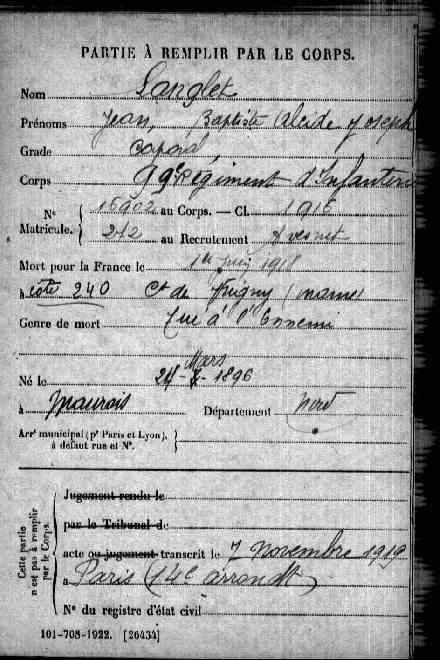 PARTIE À REMPLIR PAR LE CORPS.
Nom Langlet
Prénoms Jean, Baptiste Alcide Joseph
Grade Caporal
Corps Régiment d'Infanterie
Nº Matricule. 16902 au Corps. — Cl. 1916
212 au Recrutement Avesnes
Mort pour la France le 1er Juin 1918
à côte 240 Ct de Vrigny (marne)
Genre de mort Tué à l'Ennemi
Mars
Né le 24 - 3 - 1896
à Maurois Département Nord
Arrt municipal (pr Paris et Lyon),
à défaut rue et Nº.
Cette partie
n'est pas à remplir
par le Corps.
Jugement rendu le
par le Tribunal de
acte ou jugement transcrit le 7 novembre 1919
à Paris (14e arrondt)
Nº du registre d'état civil
101-708-1922. [26434]